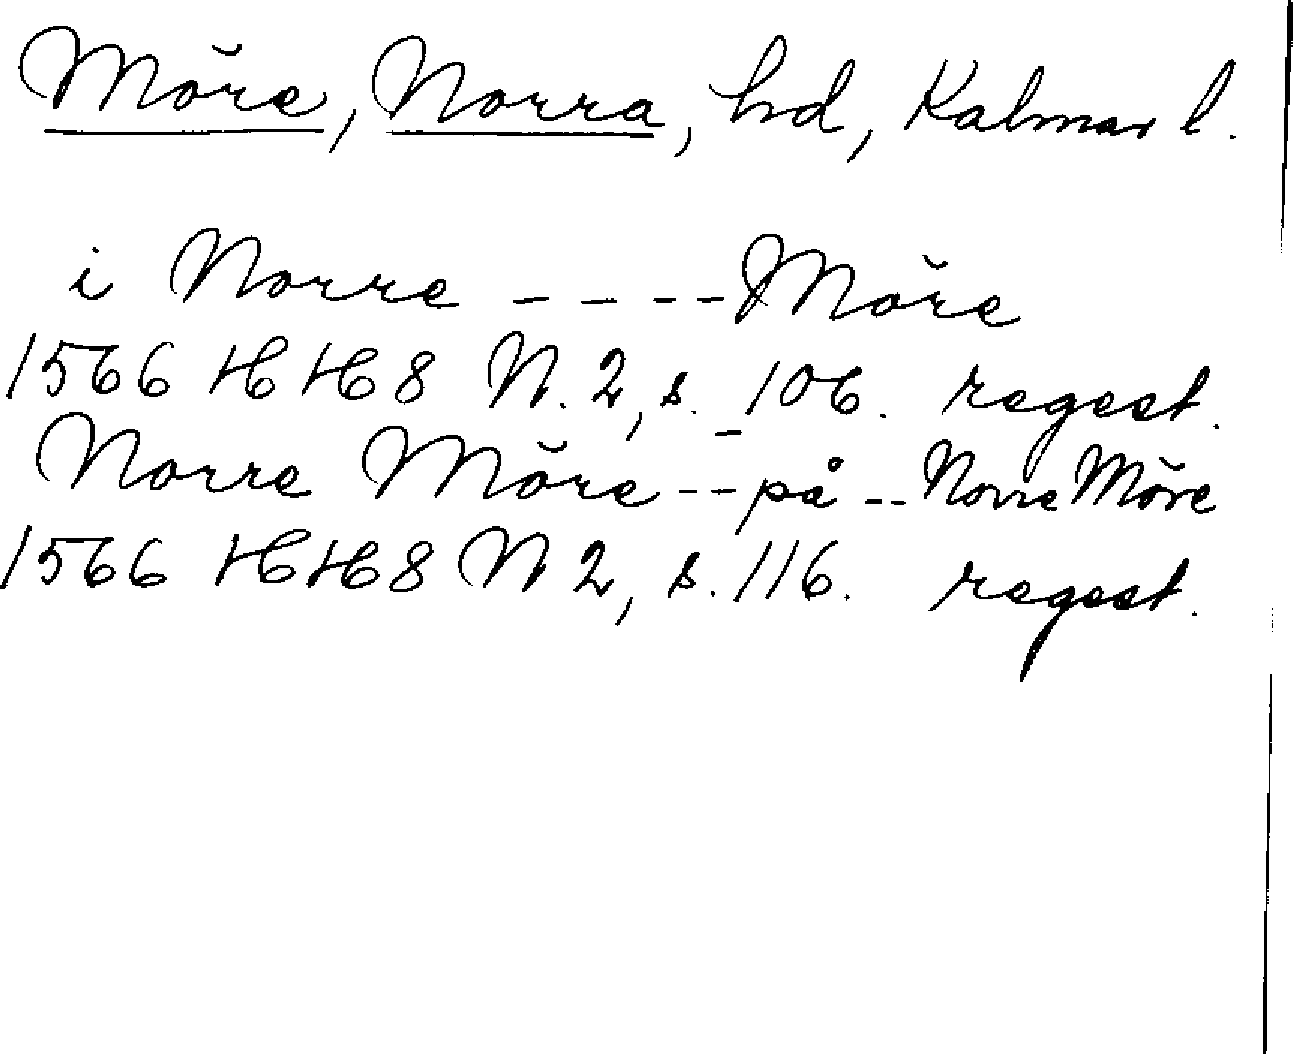 Möre, Norra, hd, Kalmar l.
i Norre - - - - Möre
1566 HH8 N. 2, s. 106. regest.
Norre Möre -- på -- Norre Möre
1566 HH8 N 2, s. 116. regest.